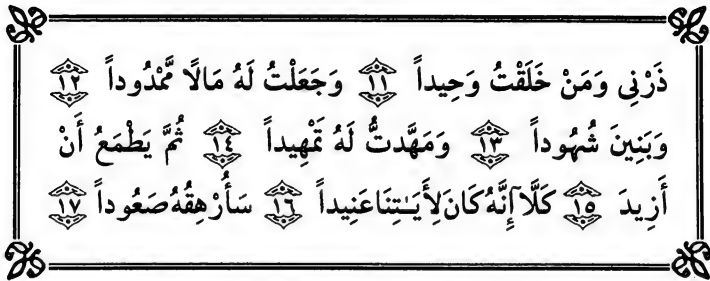 ذَرْنِى وَمَنْ خَلَقْتُ وَحِيداً ١١ وَجَعَلْتُ لَهُ مَالًا مَّمْدُوداً ١٢
وَبَنِينَ شُهُوداً ١٣ وَمَهَّدتُّ لَهُ تَمْهِيداً ١٤ ثُمَّ يَطْمَعُ أَنْ
أَزِيدَ ١٥ كَلَّآ إِنَّهُ كَانَ لِأَيَـٰتِنَا عَنِيداً ١٦ سَأُرْهِقُهُ صَعُوداً ١٧